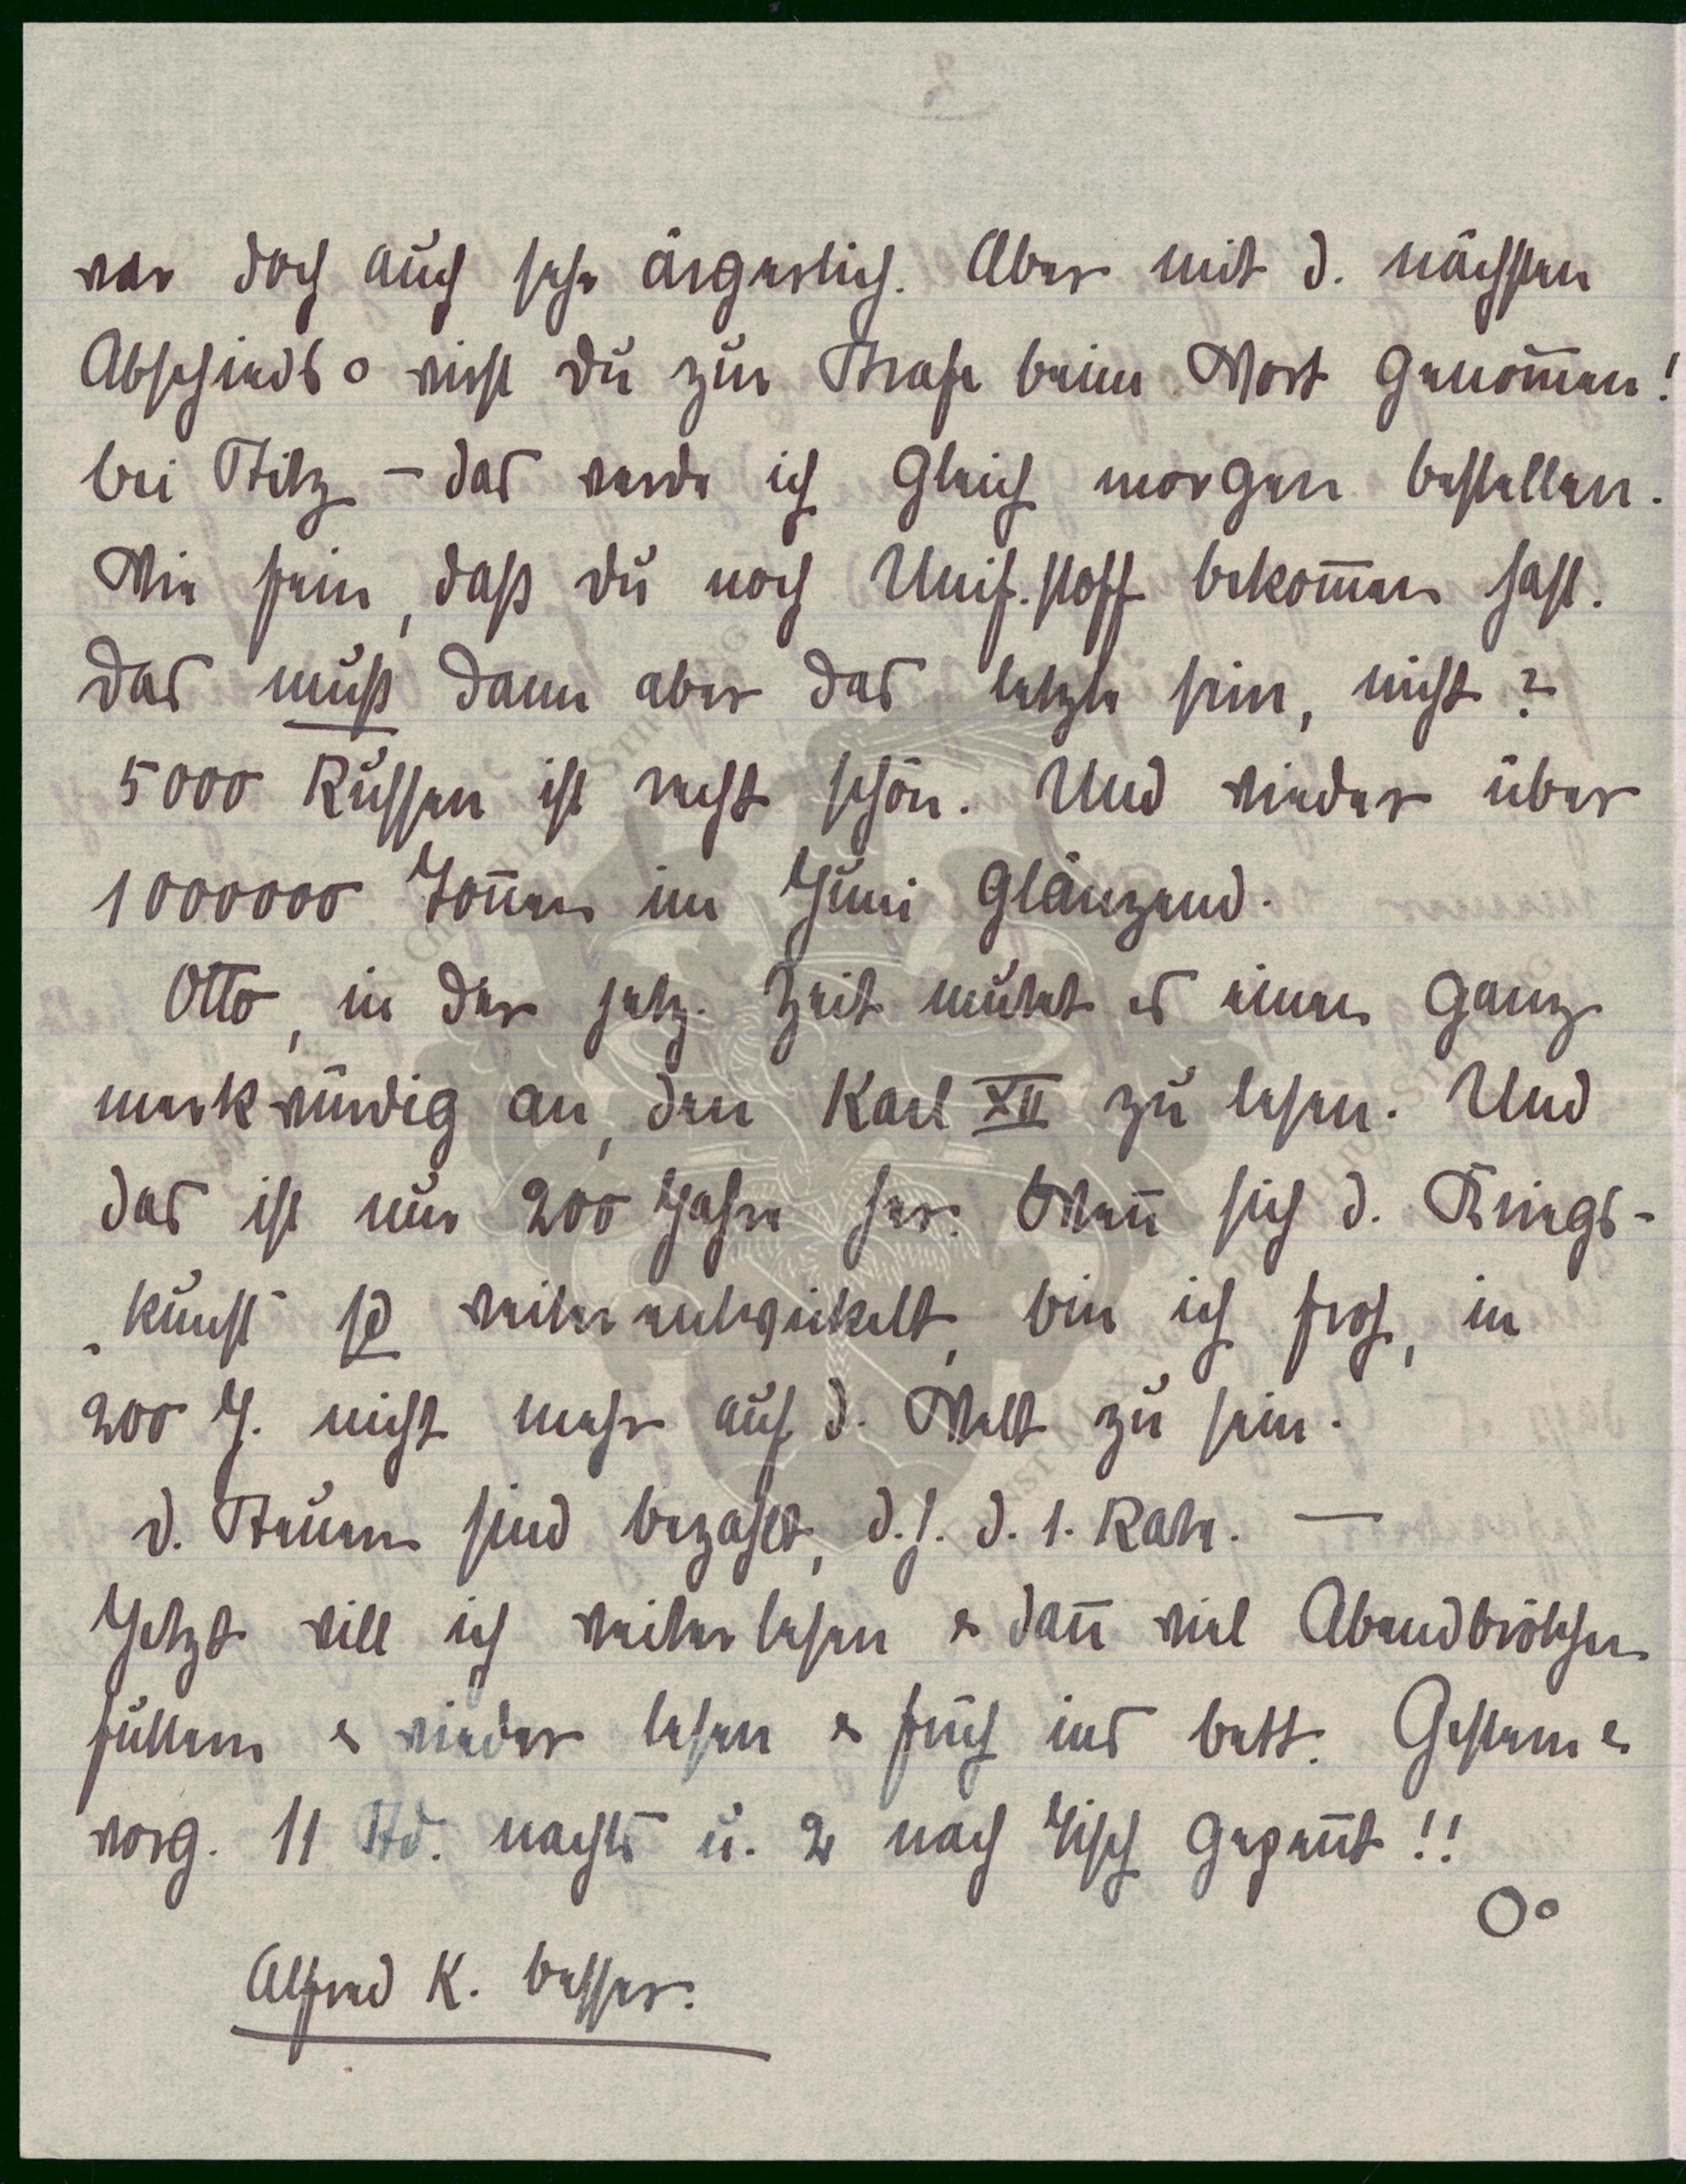 war doch auch sehr ärgerlich. Aber mit d. nächsten
Abschieds o wirst Du zur Strafe beim Wort genom̅en!
bei Stilz – das werde ich gleich morgen bestellen.
Wie fein, daß Du noch Unif.stoff bekom̅en hast.
Das muß dann aber das letzte sein, nicht?
5000 Russen ist recht schön. Und wieder über
1000000 Ton̅en im Juni glänzend.
Otto, in der jetz. Zeit mutet es einen ganz
merkwürdig an, den Karl XII zu lesen. Und
das ist nur 200 Jahre her. Wen̅ sich d. Kriegs-
„kunst" so weiterentwickelt, bin ich froh, in
200 J. nicht mehr auf d. Welt zu sein.
D. Steuern sind bezahlt, d.h. d. 1. Rate. —
Jetzt will ich weiterlesen & dan̅ viel Abendbrötchen
futtern & wieder lesen & früh ins Bett. Gestern &
vorg. 11 Std. nachts u. 2 nach Tisch gepen̅t!!
Oo
Alfred K. besser.